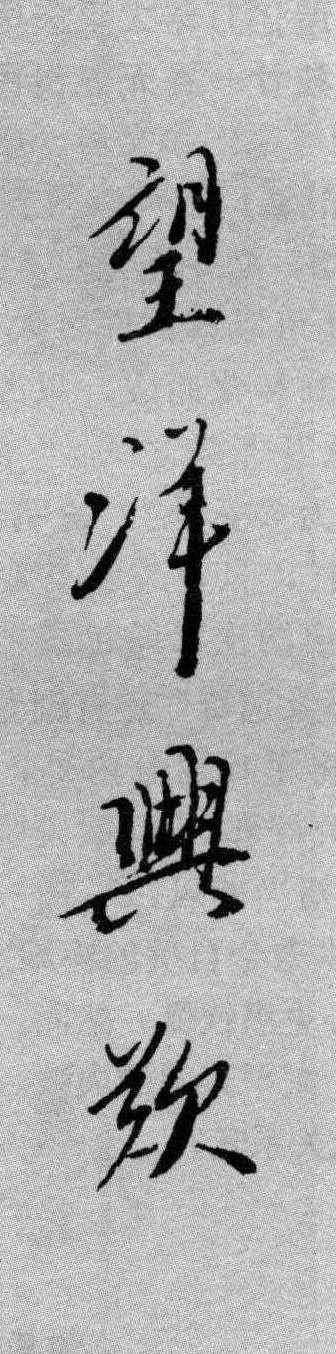 望洋興歎